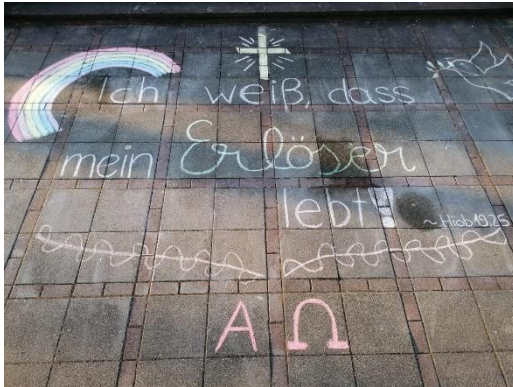 Ich weiß, dass
mein Erlöser
lebt!
~Hiob 19,25
A Ω